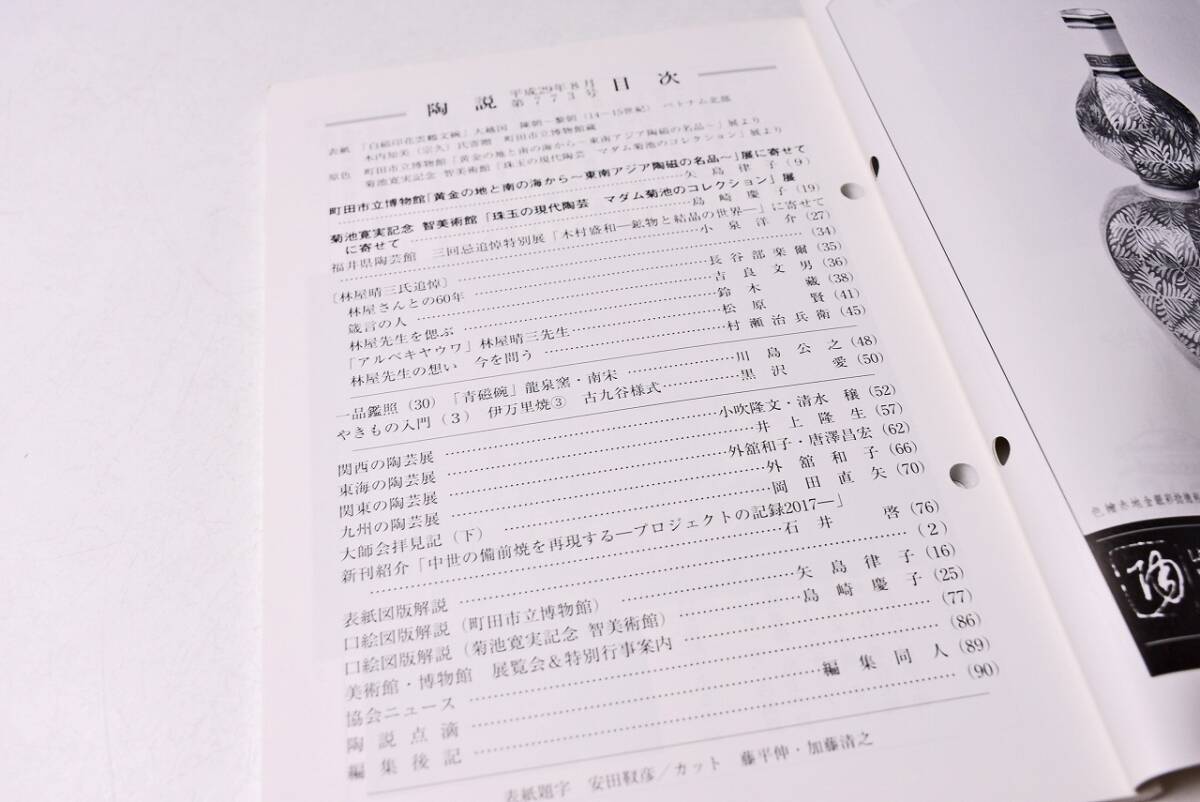 陶説 平成29年8月 第773号 目次
表紙 「白磁印花雲鶴文碗」大越国 陳朝―黎朝(14―15世紀) ベトナム北部
木内知美(宗久)氏寄贈 町田市立博物館蔵
原色 町田市立博物館「黄金の地と南の海から～東南アジア陶磁の名品～」展より
菊池寛実記念 智美術館「珠玉の現代陶芸 マダム菊池のコレクション」展より
町田市立博物館「黄金の地と南の海から～東南アジア陶磁の名品～」展に寄せて
矢島律子(9)
菊池寛実記念 智美術館「珠玉の現代陶芸 マダム菊池のコレクション」展
に寄せて 島崎慶子(19)
福井県陶芸館 三回忌追悼特別展「木村盛和―鉱物と結晶の世界―」に寄せて
小泉洋介(27)
〔林屋晴三氏追悼〕 (34)
林屋さんとの60年 長谷部楽爾(35)
箴言の人 吉良文男(36)
林屋先生を偲ぶ 鈴木藏(38)
「アルベキヤウワ」林屋晴三先生 松原賢(41)
林屋先生の想い 今を問う 村瀬治兵衛(45)
一品鑑照(30)「青磁碗」龍泉窯・南宋 川島公之(48)
やきもの入門(3) 伊万里焼③ 古九谷様式 黒沢愛(50)
関西の陶芸展 小吹隆文・清水穣(52)
東海の陶芸展 井上隆生(57)
関東の陶芸展 外舘和子・唐澤昌宏(62)
九州の陶芸展 外舘和子(66)
大師会拝見記(下) 岡田直矢(70)
新刊紹介「中世の備前焼を再現する―プロジェクトの記録2017―」
石井啓(76)
表紙図版解説 (2)
口絵図版解説(町田市立博物館) 矢島律子(16)
口絵図版解説(菊池寛実記念 智美術館) 島崎慶子(25)
美術館・博物館 展覧会&特別行事案内 (77)
協会ニュース (86)
陶説点滴 編集同人(89)
編集後記 (90)
表紙題字 安田靫彦/カット 藤平伸・加藤清之
陶